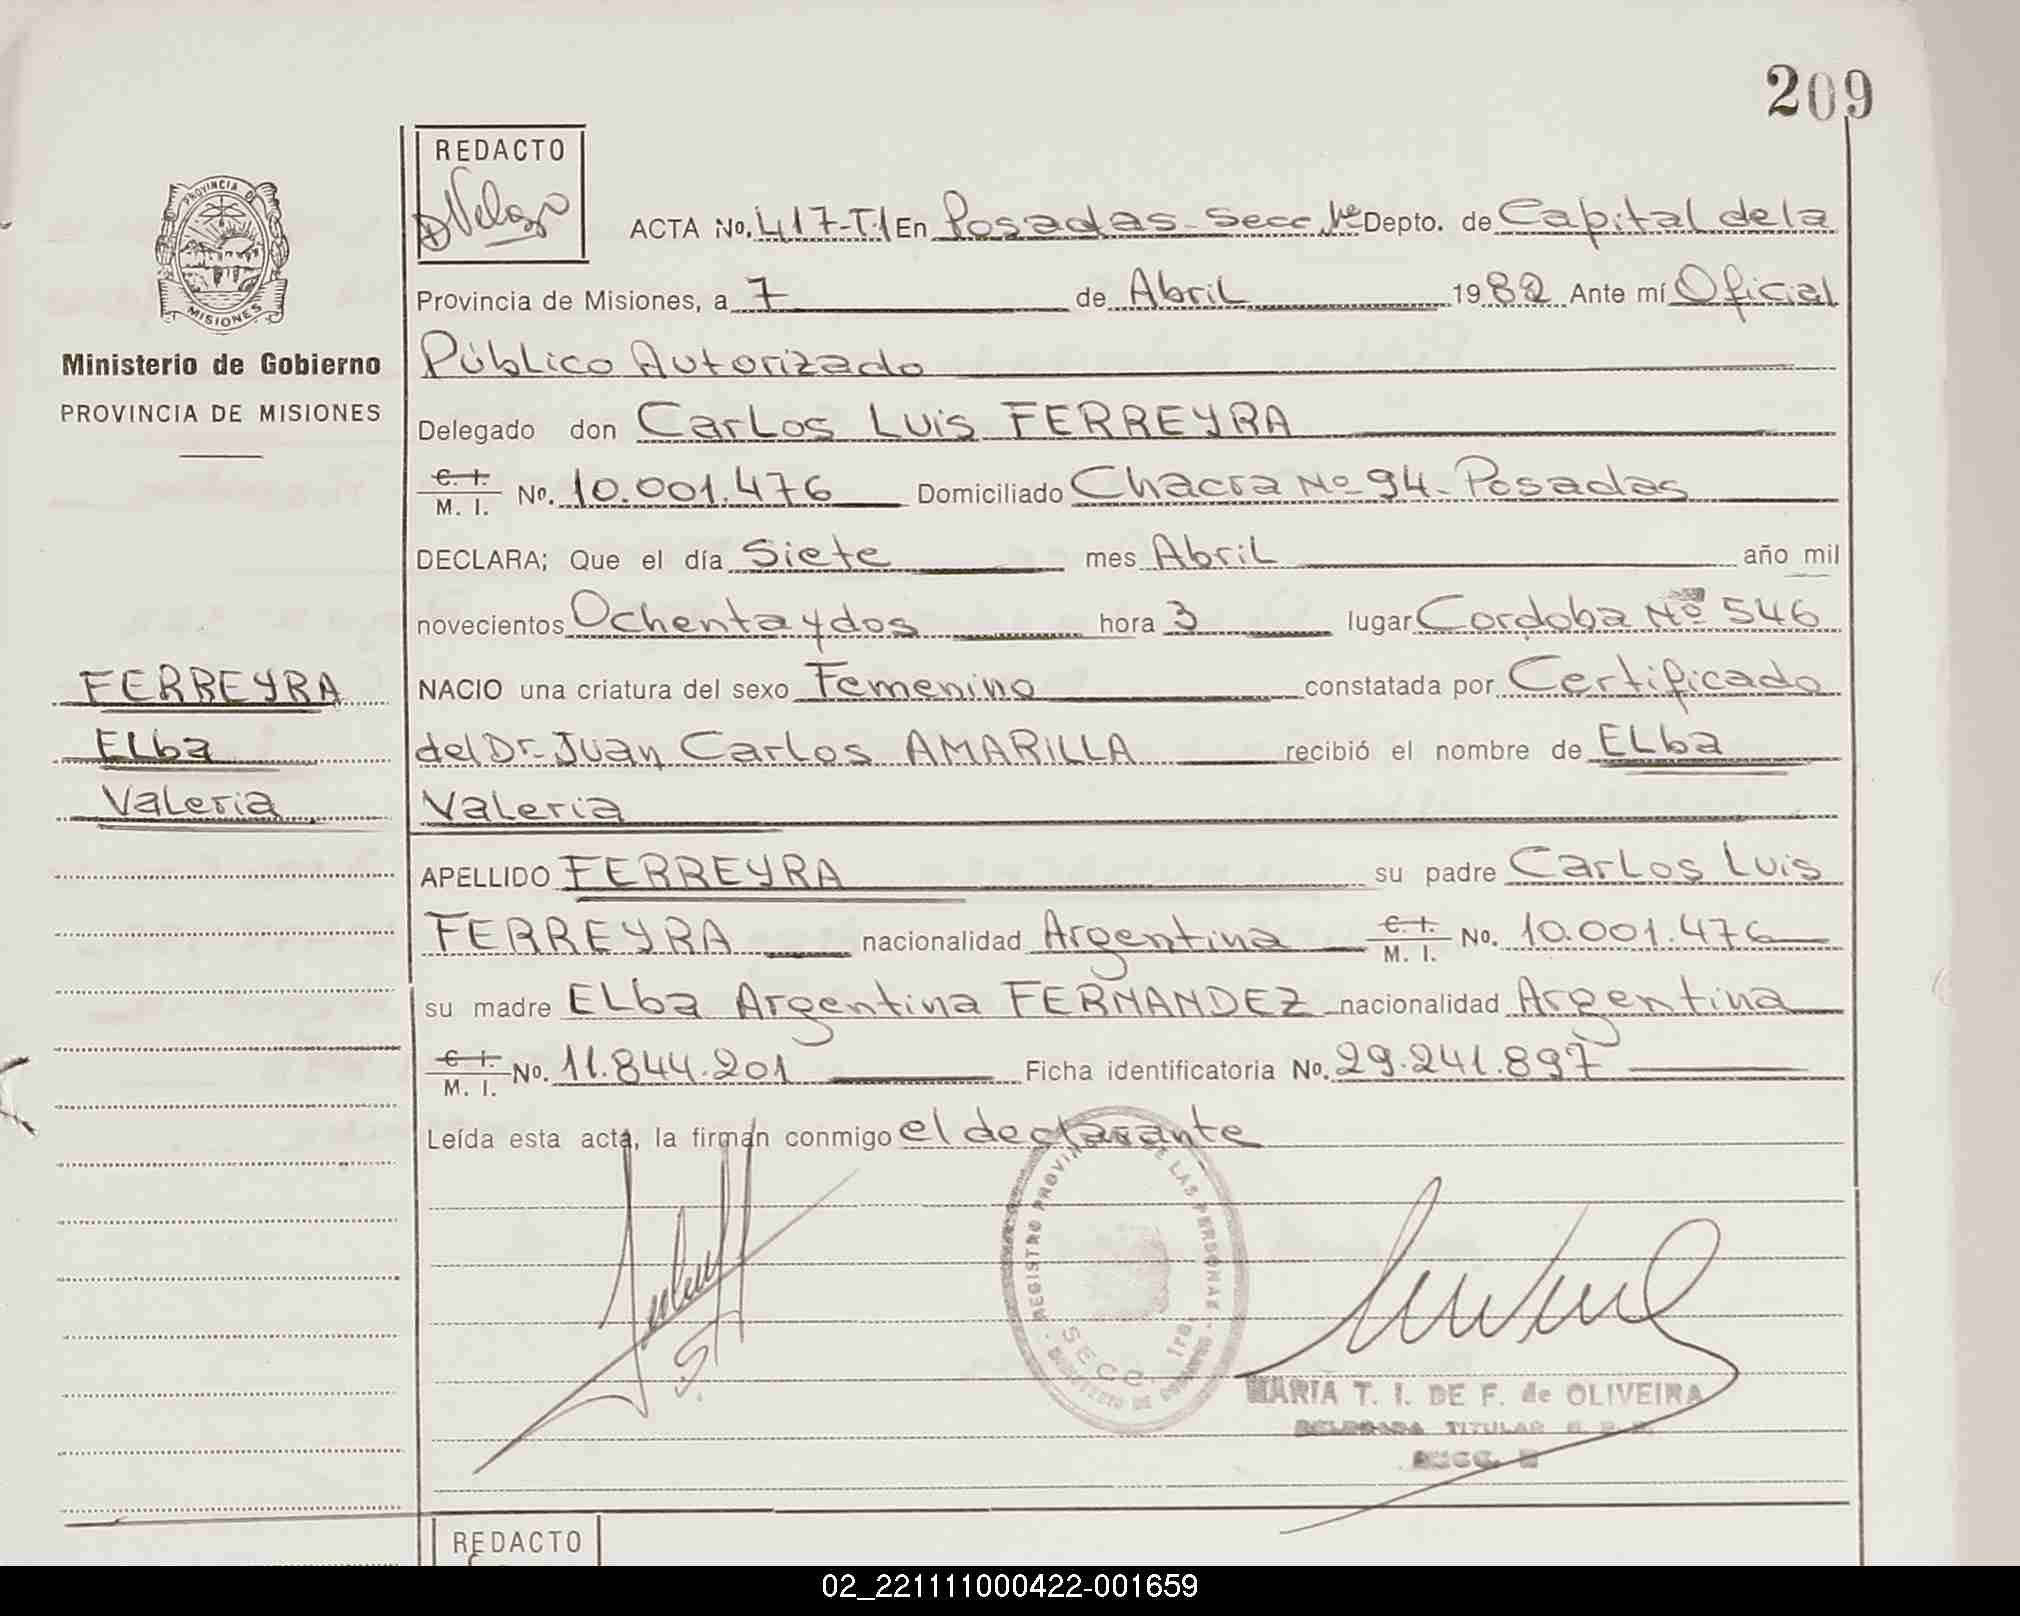 209
REDACTO
PROVINCIA DE
MISIONES
Ministerio de Gobierno
PROVINCIA DE MISIONES
FERREYRA
ELba
Valeria
ACTA No. 417-T.1 En Posadas - Secc. 1re Depto. de Capital de la
Provincia de Misiones, a 7 de Abril 1982 Ante mí Oficial
Público Autorizado
Delegado don Carlos Luis FERREYRA
C. I. M. I. No. 10.001.476 Domiciliado Chacra No 94 - Posadas
DECLARA; Que el día Siete mes Abril año mil
novecientos Ochenta y dos hora 3 lugar Cordoba No 546
NACIO una criatura del sexo Femenino constatada por Certificado
del Dr. Juan Carlos AMARILLA recibió el nombre de ELba
Valeria
APELLIDO FERREYRA su padre Carlos Luis
FERREYRA nacionalidad Argentina C. I. M. I. No. 10.001.476
su madre ELba Argentina FERNANDEZ nacionalidad Argentina
C. I. M. I. No. 11.844.201 Ficha identificatoria No. 29.241.897
Leída esta acta, la firman conmigo el declarante
REGISTRO PROVIN DE LAS PERSONAS
SECC. 1ra.
MARIA T. I. DE F. de OLIVEIRA
DELEGADA TITULAR
SECC.
REDACTO
02_221111000422-001659